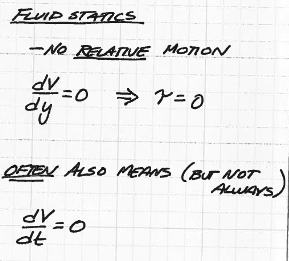 FLUID STATICS
-NO RELATIVE MOTION
dV/dy = 0 ⇒ τ = 0
OFTEN ALSO MEANS (BUT NOT
ALWAYS)
dV/dt = 0